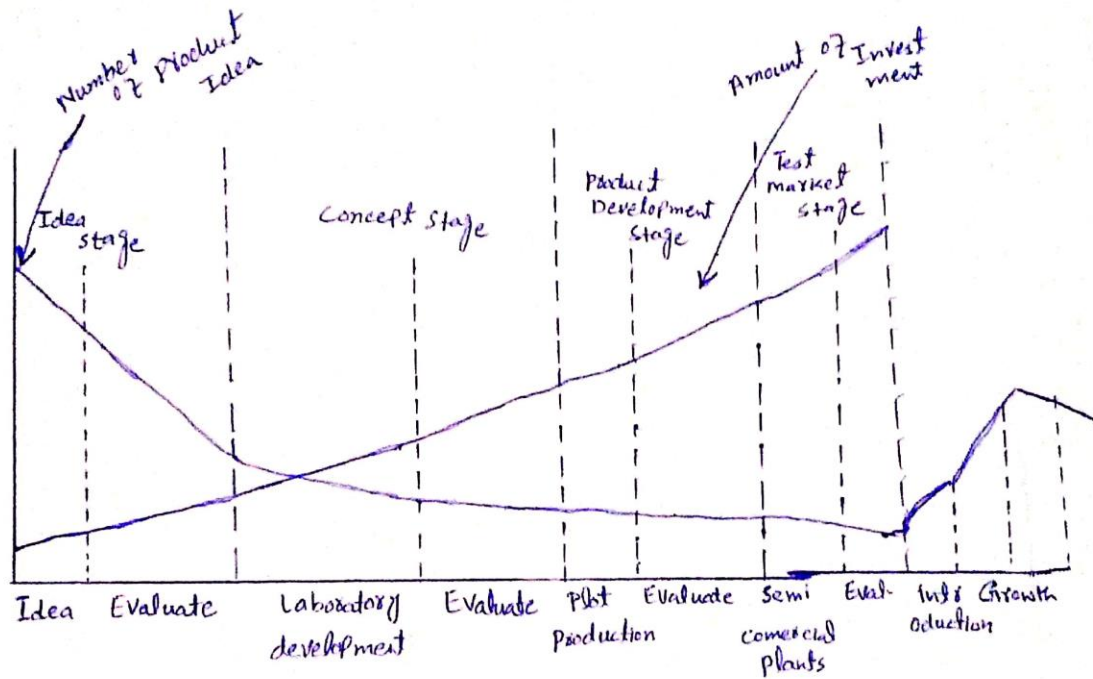 Number
of Product
Idea
Amount of Invest
ment
Idea
Stage
Concept Stage
Product
Development
Stage
Test
market
Stage
Idea
Evaluate
Laboratory
development
Evaluate
Pilot
Production
Evaluate
Semi
Comercial
Plants
Eval-
Intr
oduction
Growth